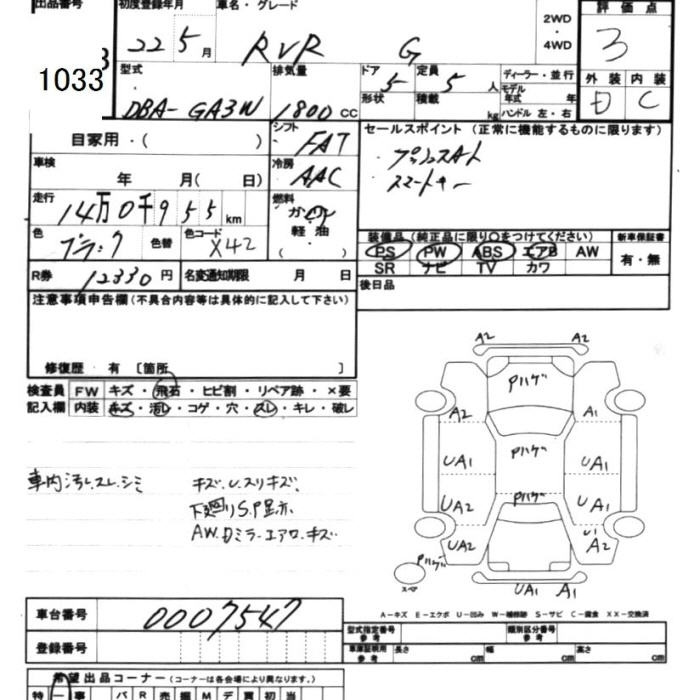 出品番号 初度登録年月 車名・グレード 2WD 評価点
22 5月 RVR G ・4WD 3
1033
型式 排気量 ドア 定員 ディーラー・並行 外装 内装
DBA-GA3W 1800cc 5 5人 モデル年式 年 D C
形状 積載 kg ハンドル 左・右
自家用・( ) シフト FAT セールスポイント (正常に機能するものに限ります)
車検 冷房 AAC ・プッシュスタート
年 月( 日) ・スマートキー
走行 燃料
14万0千955km ガソリン
軽油
色 ブラック 色替 色コード X42 ( )
装備品 (純正品に限り○をつけてください) 新車保証書
PS PW ABS エアB AW 有・無
SR ナビ TV カワ
R券 12330円 名変通知期限 月 日 後日品
注意事項申告欄(不具合内容等は具体的に記入して下さい)
修復歴・有 〔箇所 〕
検査員 FW キズ・飛石・ヒビ割・リペア跡・×要
記入欄 内装 キズ・汚レ・コゲ・穴・スレ・キレ・破レ
A2 A2
Pハゲ
A2 A1
UA1 Pハゲ UA1
UA2 Pハゲ A1
UA2 U1 A2
Pハゲ
スペア
UA1 A1
車内汚レ.スレ.シミ キズ.U.スリキズ.
下廻りS.P足赤
AW.Dミラ-エアロ.キズ
A-キズ E-エクボ U-凹み W-補修跡 S-サビ C-腐食 XX-交換済
車台番号 0007547
型式指定番号参考 類別区分番号参考
登録番号 車庫証明用参考 長さ cm 幅 cm 高さ cm
希望出品コーナー (コーナーは各会場により異なります。)
特 一 事 パ R 売 M デ 買 初 当